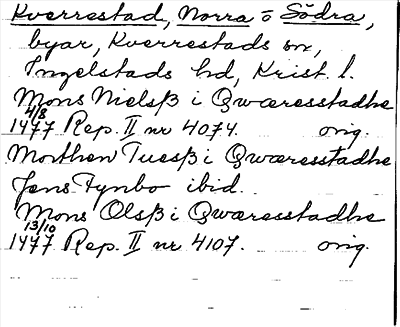 Kverrestad, Norra o Södra,
byar, Kverrestads sn,
Ingelstads hd, Krist. l.
Mons Nielsß i Qwæresstadhe
4/8
1477 Rep. II nr 4074. orig.
Morthen Tuesß i Qwæresstadhe
Jens Fynbo ibid.
Mons Olsß i Qwæresstadhe
13/10
1477 Rep. II nr 4107. orig.